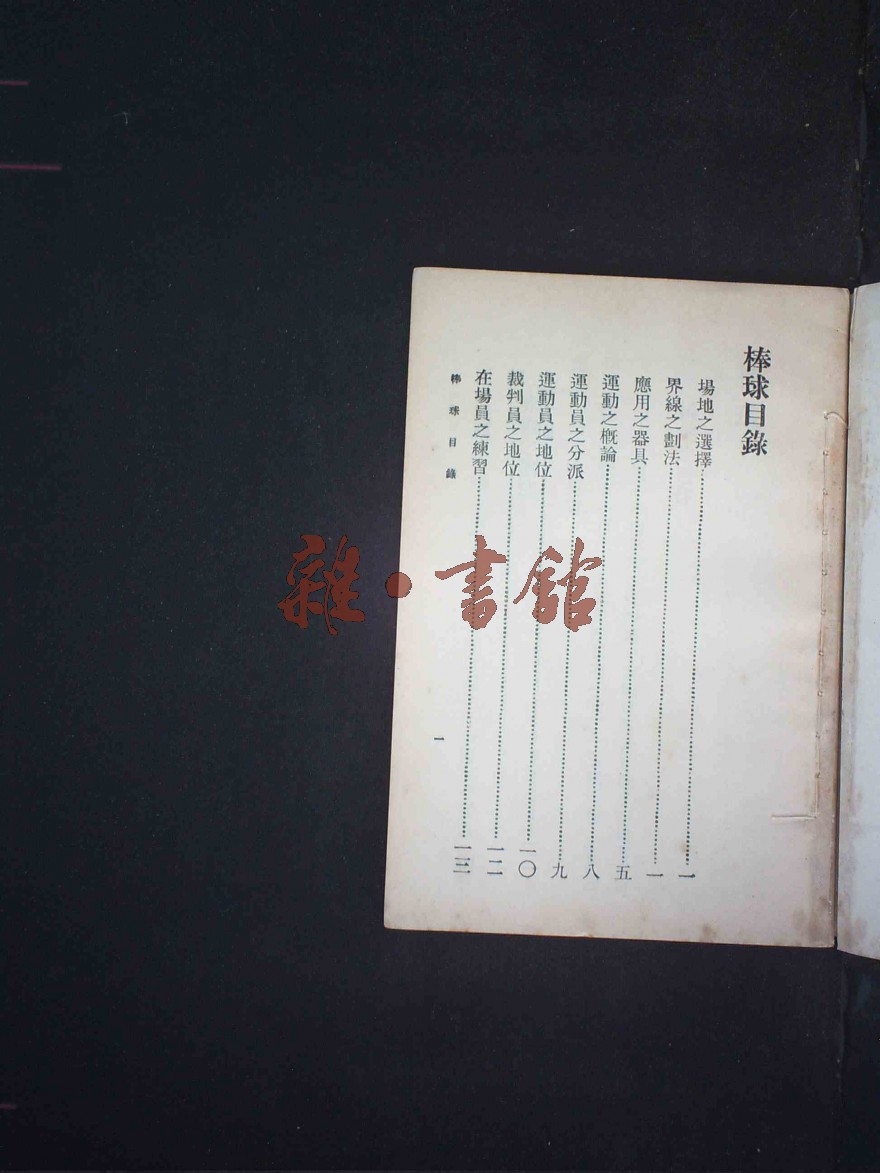 棒球目錄
場地之選擇⋯⋯⋯⋯⋯⋯一
界線之劃法⋯⋯⋯⋯⋯⋯一
應用之器具⋯⋯⋯⋯⋯⋯五
運動之概論⋯⋯⋯⋯⋯⋯八
運動員之分派⋯⋯⋯⋯⋯⋯九
運動員之地位⋯⋯⋯⋯⋯⋯一〇
裁判員之地位⋯⋯⋯⋯⋯⋯一二
在場員之練習⋯⋯⋯⋯⋯⋯一三
棒球目錄
一
雜·書館